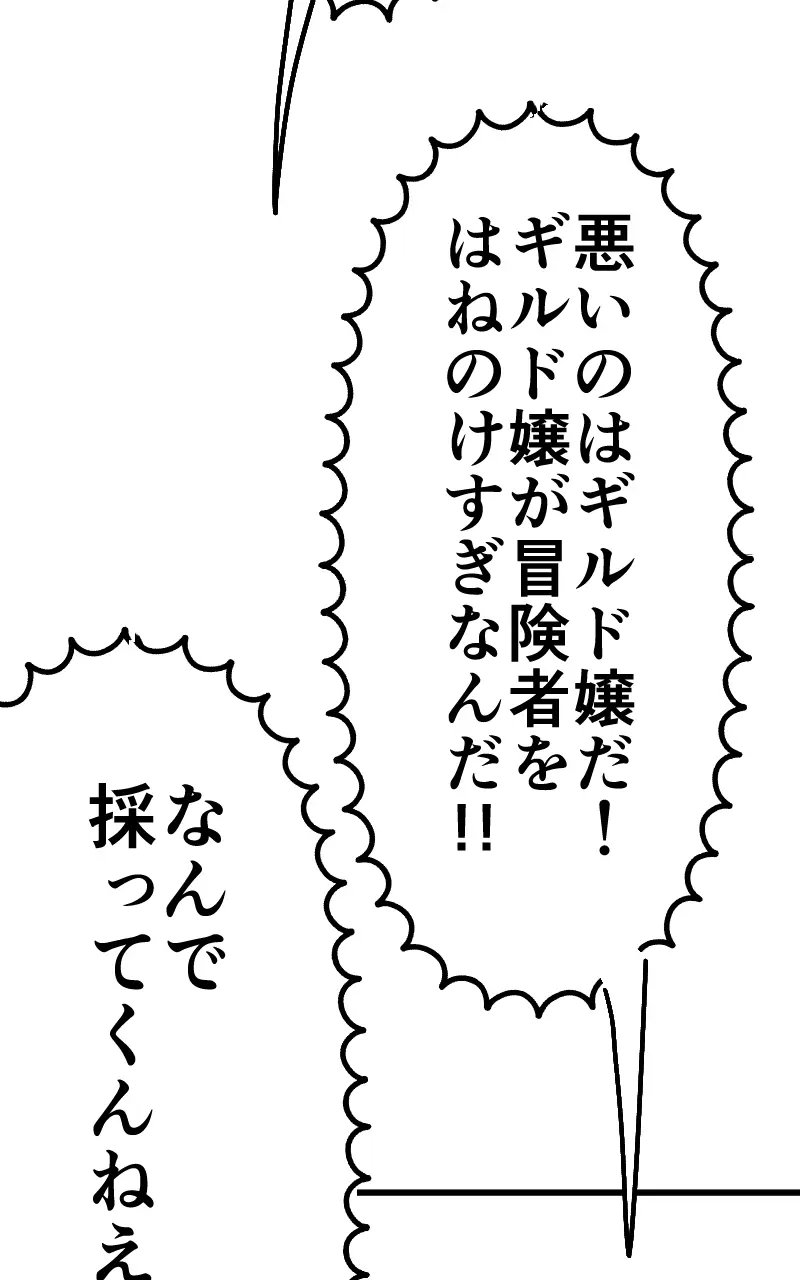 悪いのはギルド嬢だ！
ギルド嬢が冒険者を
はねのけすぎなんだ!!
なんで
採ってくんねえ